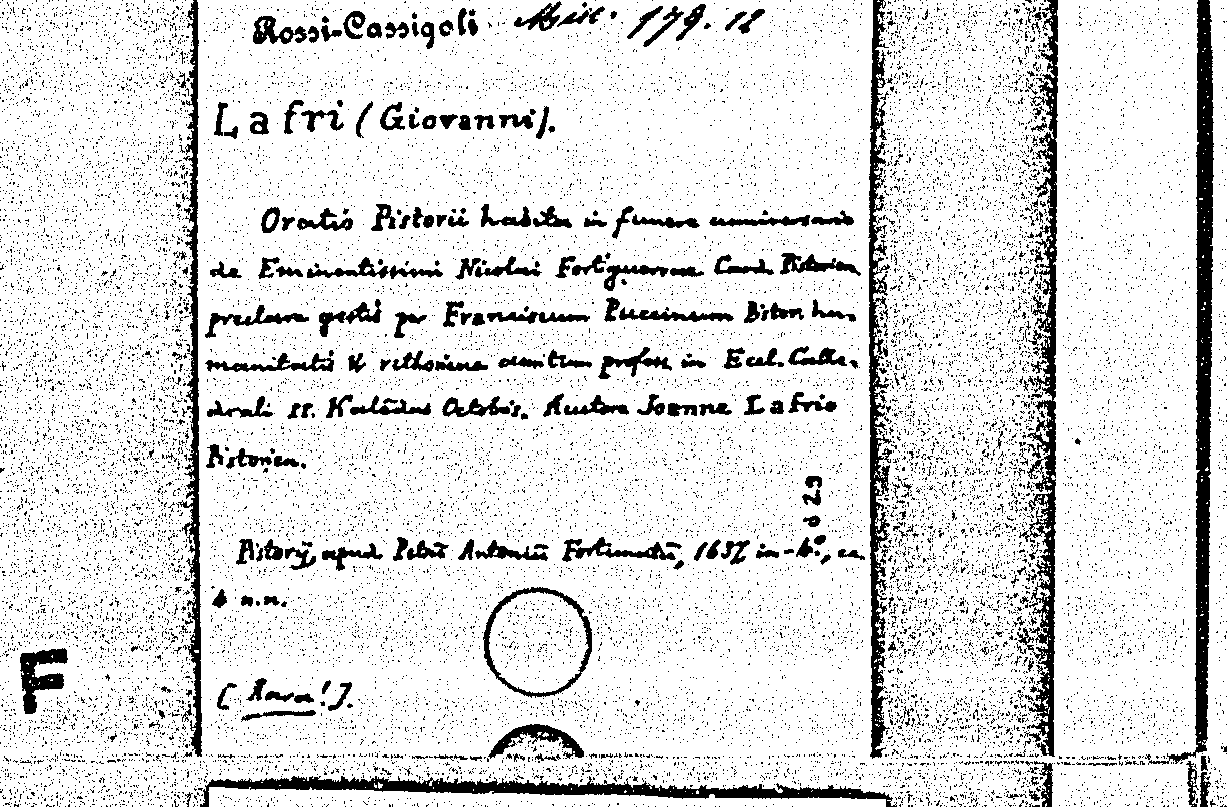 Rossi-Cassigoli Misc. 179. 12
Lafri (Giovanni).
Oratio Pistorii habita in funere anniversario
de Eminentissimi Nicolai Fortiguerrae Card. Pistorien.
preclare gestis per Franciscum Puccinum Piston hu-
manitatis & rethoricae profess. in Eccl. Cathe-
drali Kalēdas Octobris. Auctore Joanne Lafrio
Pistorien.
Pistorij, apud Petrū Antoniū Fortunatū, 1637 in-4°, ca.
4 n.n.
[Rara!].
F